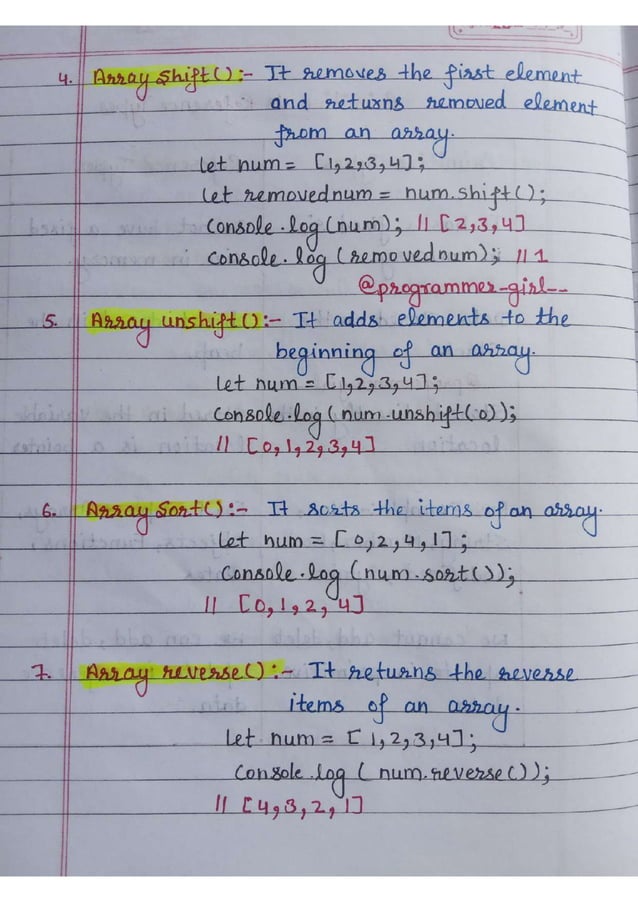 4. Array Shift() :- It removes the first element
and returns removed element
from an array.
let num = [1,2,3,4];
let removednum = num.shift();
Console.log(num); // [2,3,4]
Console.log(removednum); // 1
@programmer-girl--
5. Array unshift() :- It adds elements to the
beginning of an array.
let num = [1,2,3,4];
Console.log(num.unshift(0));
// [0,1,2,3,4]
6. Array Sort() :- It sorts the items of an array.
Let num = [0,2,4,1];
Console.log(num.sort());
// [0,1,2,4]
7. Array reverse() :- It returns the reverse
items of an array.
let num = [1,2,3,4];
Console.log(num.reverse());
// [4,3,2,1]